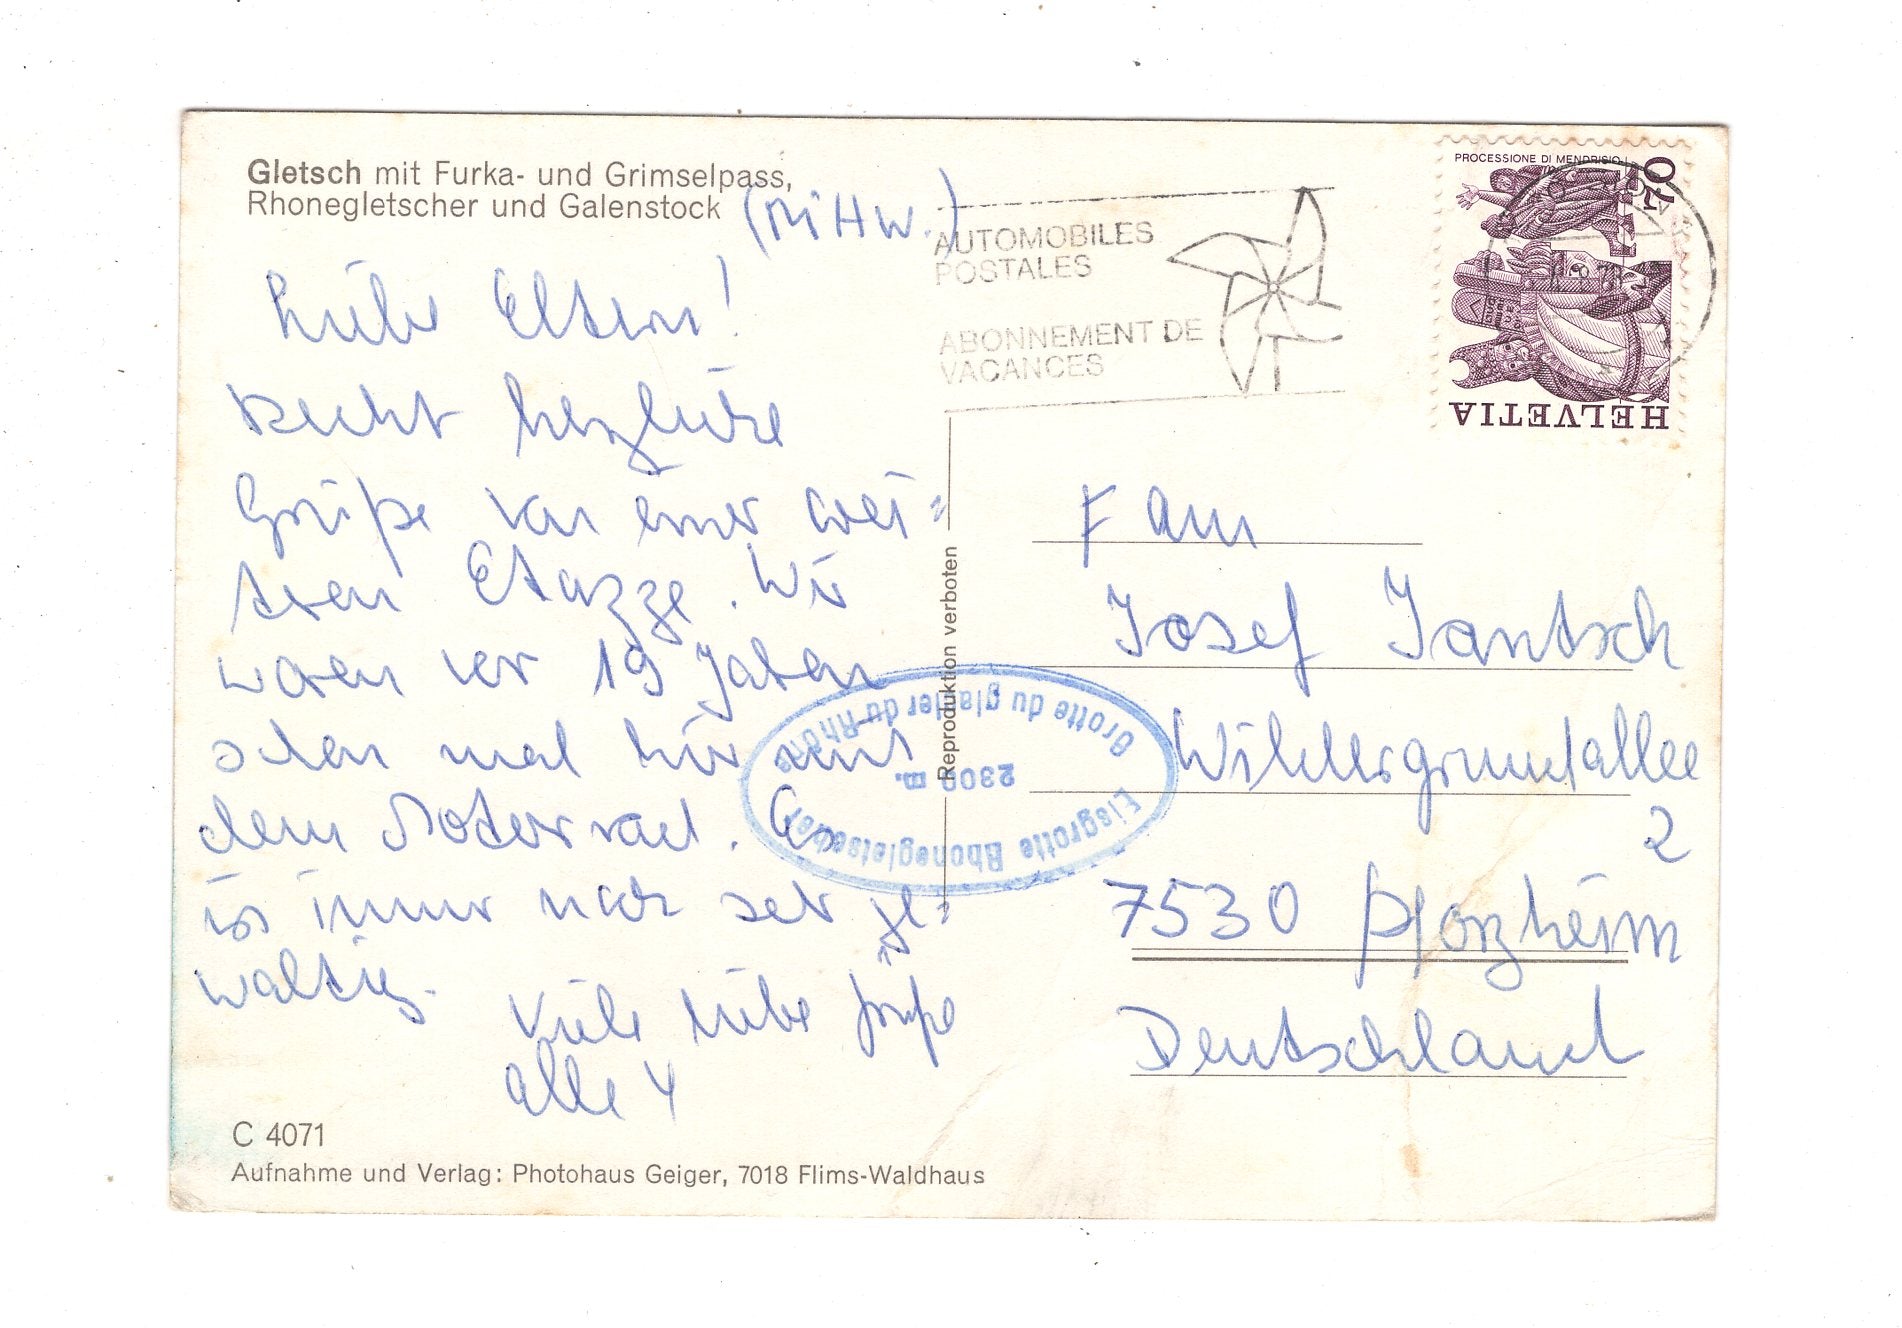 Gletsch mit Furka- und Grimselpass,
Rhonegletscher und Galenstock
AUTOMOBILES
POSTALES
ABONNEMENT DE
VACANCES
PROCESSIONE DI MENDRISIO
70
HELVETIA
Liebe Eltern!
Recht herzliche
Grüße von einer wei=
teren Etappe. Wir
waren vor 19 Jahren
schon mal hier mit
dem Motorrad. Es
ist immer noch sehr ge=
waltig.
Viele liebe Grüße
alle 4
Reproduktion verboten
Grotte du glacier du Rhône
2300 m.
Eisgrotte Rhonegletscher
Fam
Josef Jantsch
Wildersgrundallee
2
7530 Pforzheim
Deutschland
C 4071
Aufnahme und Verlag: Photohaus Geiger, 7018 Flims-Waldhaus